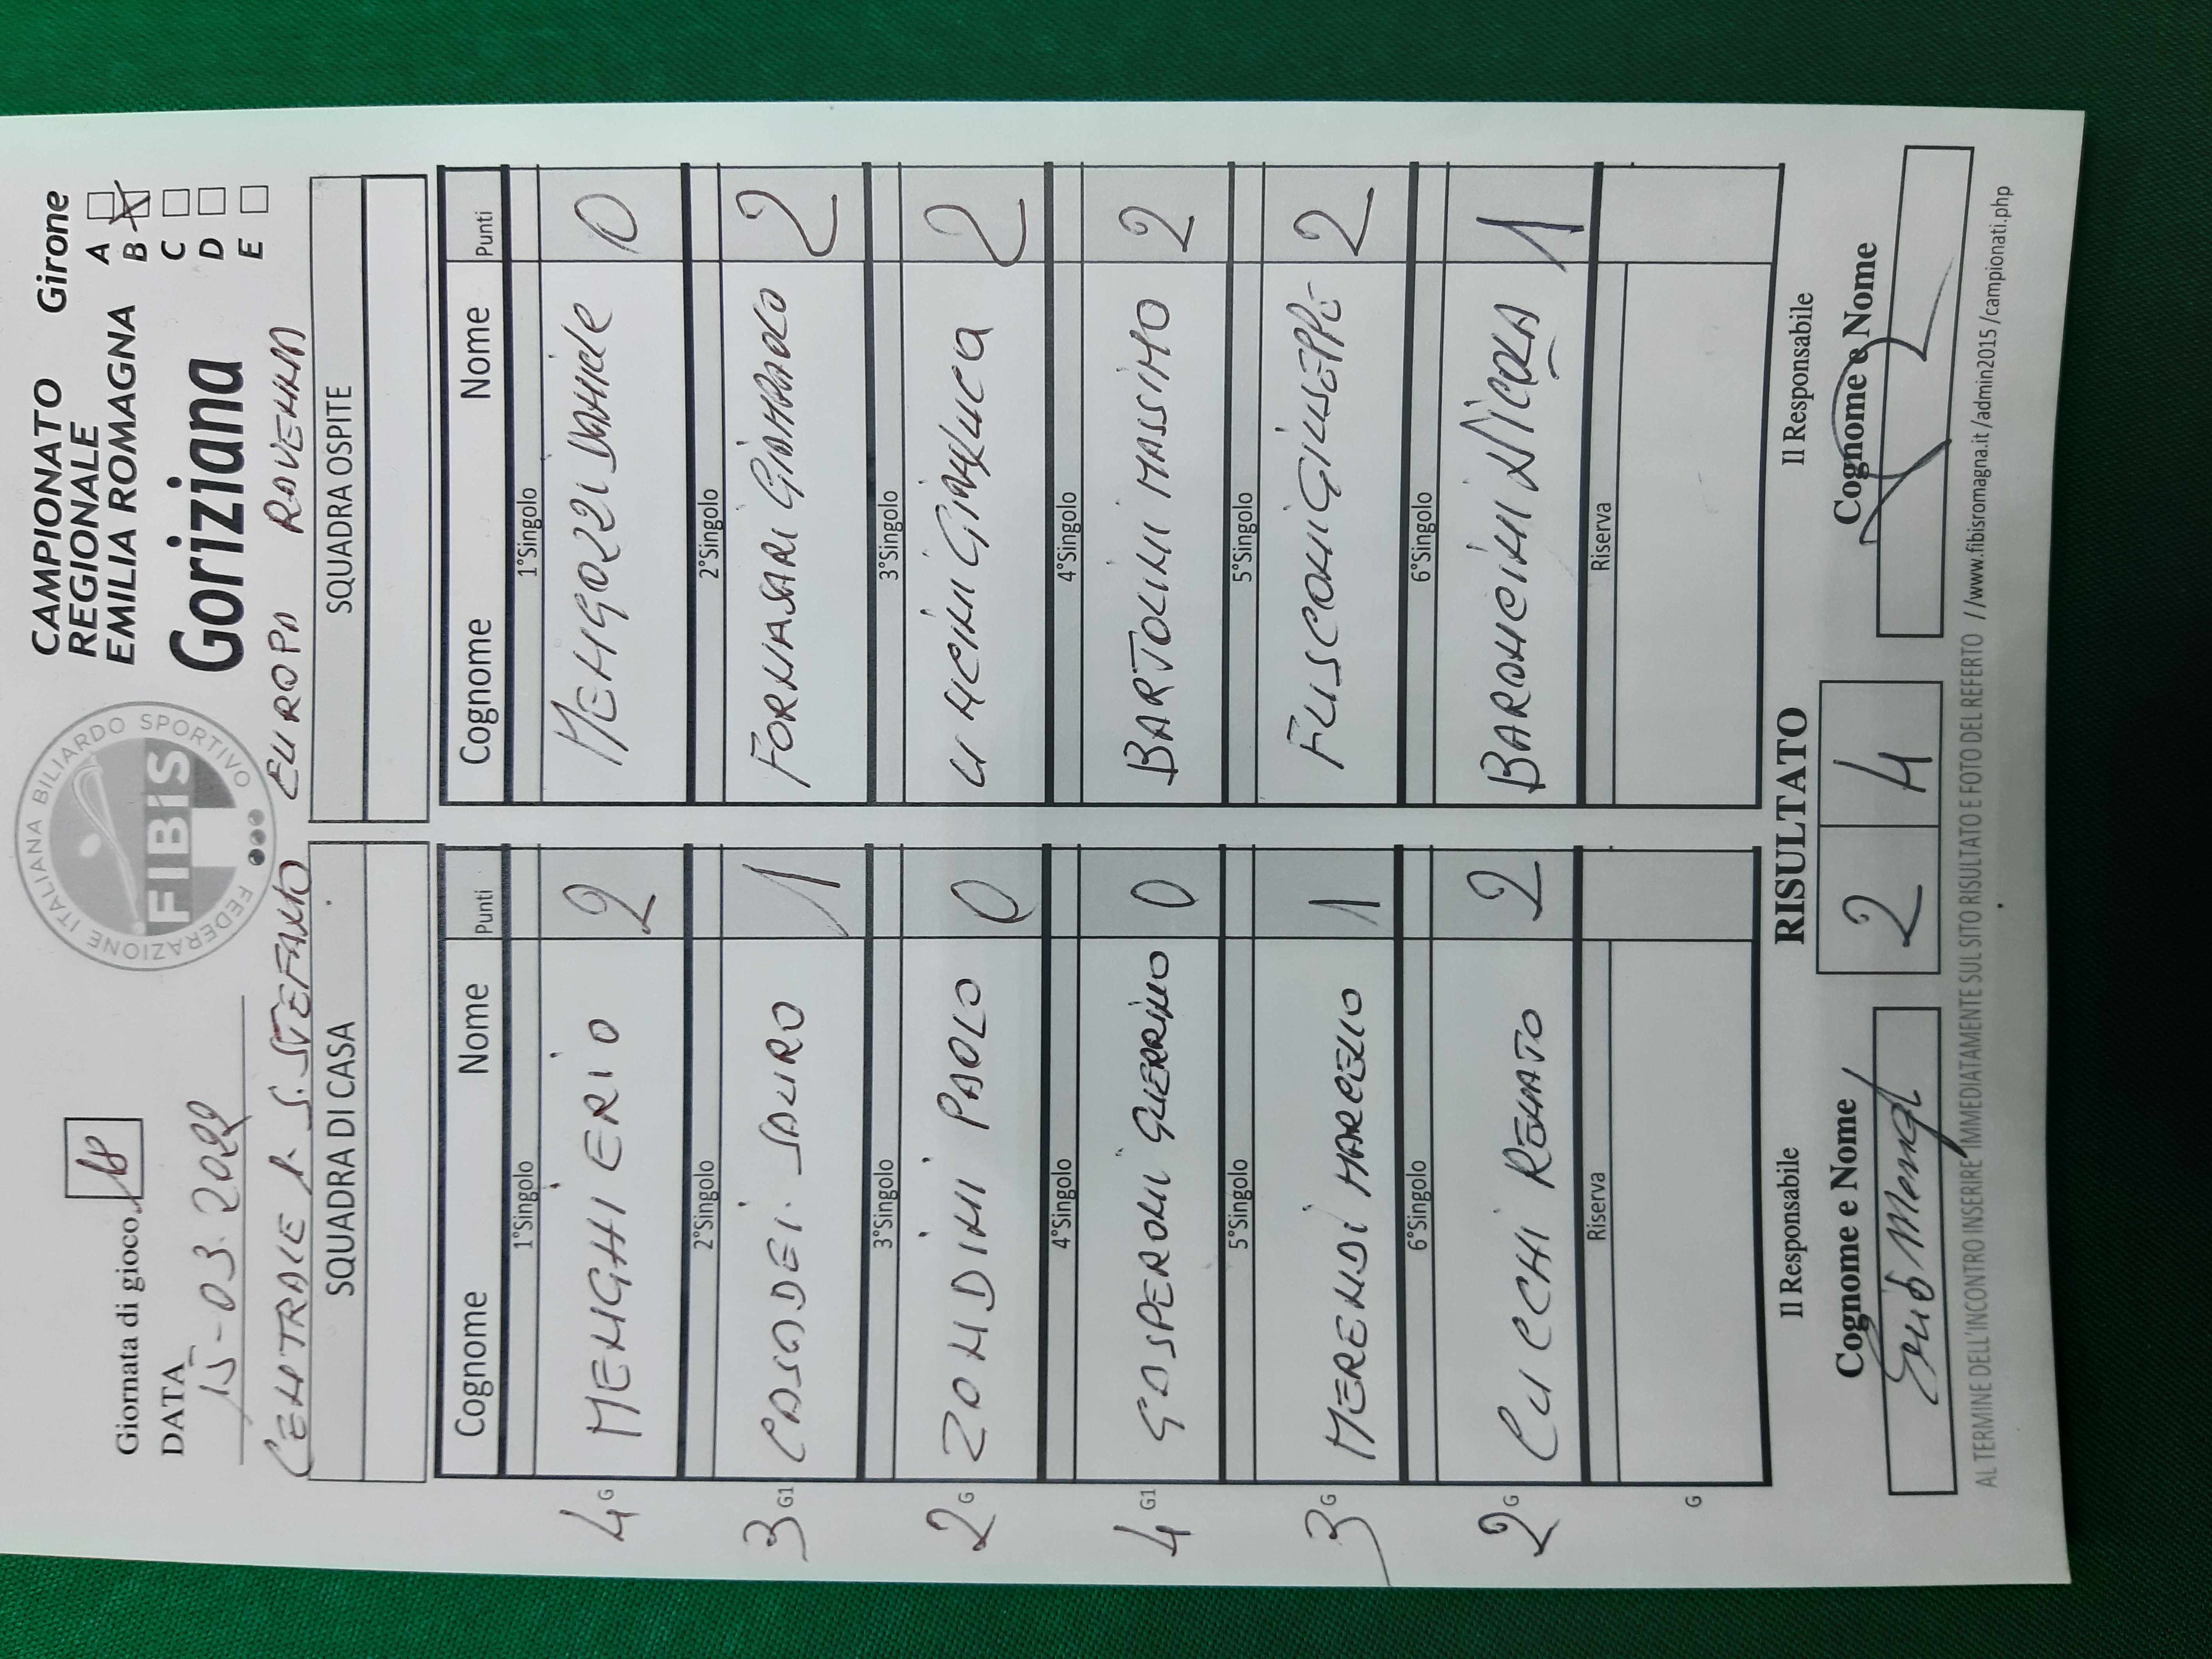 Giornata di gioco 18
DATA 15-03.2022
FEDERAZIONE ITALIANA BILIARDO SPORTIVO
FIBIS
CAMPIONATO
REGIONALE
EMILIA ROMAGNA
Goriziana
Girone
A
B X
C
D
E
CENTRALE P. S. STEFANO EUROPA RAVENNA
SQUADRA DI CASA SQUADRA OSPITE
Cognome Nome Punti Cognome Nome Punti
1°Singolo 1°Singolo
4 G MENGHI ERIO 2 MENGOZZI DANIELE 0
2°Singolo 2°Singolo
3 G1 CASADEI SAURO 1 FORNASARI GIANPAOLO 2
3°Singolo 3°Singolo
2 G ZONDINI PAOLO 0 UNCINI GIANLUCA 2
4°Singolo 4°Singolo
4 G1 GASPERONI GUERRINO 0 BARTOLINI MASSIMO 2
5°Singolo 5°Singolo
3 G MERENDI MARCELLO 1 FUSCONI GIUSEPPE 2
6°Singolo 6°Singolo
2 G CUCCHI RENATO 2 BARONCINI NICOLA 1
Riserva Riserva
G
Il Responsabile RISULTATO Il Responsabile
Cognome e Nome 2 4 Cognome e Nome
Erio Menghi
AL TERMINE DELL'INCONTRO INSERIRE IMMEDIATAMENTE SUL SITO RISULTATO E FOTO DEL REFERTO //www.fibisromagna.it/admin2015/campionati.php